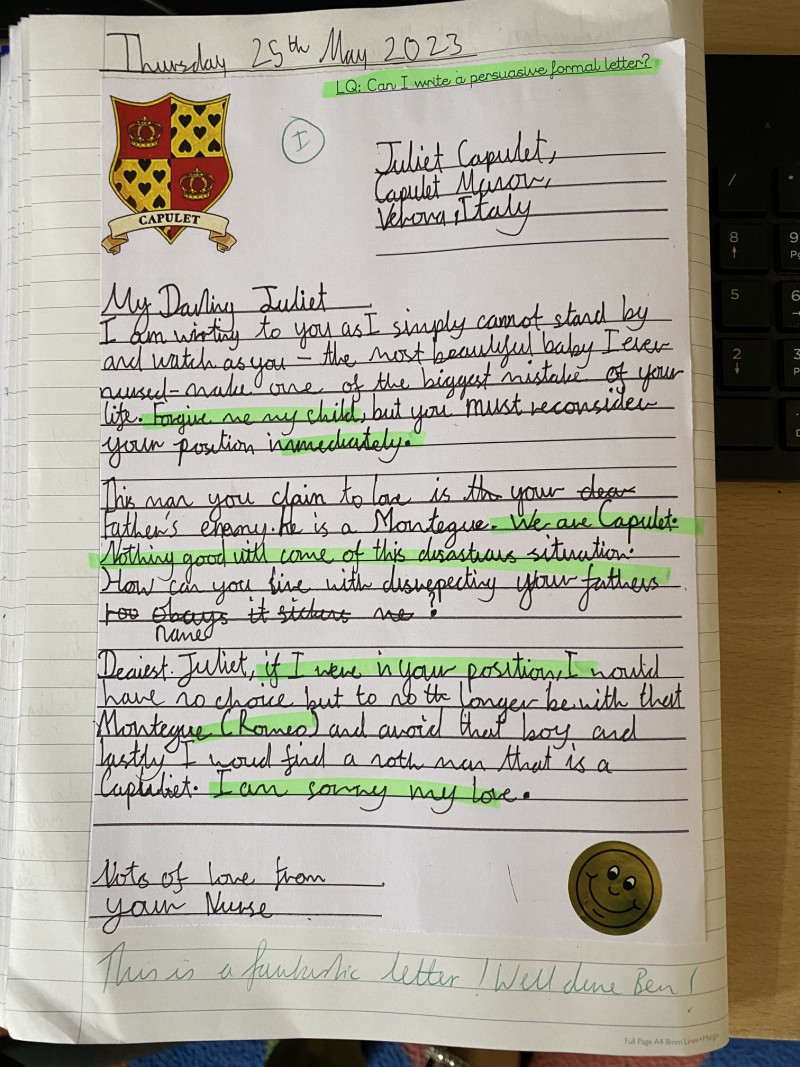 Thursday 25th May 2023
LQ: Can I write a persuasive formal letter?
I
CAPULET
Juliet Capulet,
Capulet Manor,
Verona, Italy
My Darling Juliet
I am wirting to you as I simply cannot stand by
and watch as you – the most beautiful baby I ever
nursed – make one of the biggest mistake of your
life. Forgive me my child, but you must reconsider
your position immediately.
This man you claim to love is th your dear
father's enemy. He is a Montegue. We are Capulet.
Nothing good will come of this disastrous situation.
How can you live with disrespecting your fathers
it me ?
name
Dearest Juliet, if I were in your position, I would
have no choice but to no th longer be with that
Montegue (Romeo) and avoid that boy and
lastly I woud find a noth man that is a
Capulet. I am sorry my love.
lots of love from
your Nurse
This is a fantastic letter! Well done Ben!
Full Page A4 8mm Lines+Margin